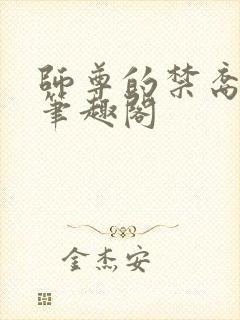 師尊的禁脔
筆趣閣
金杰安